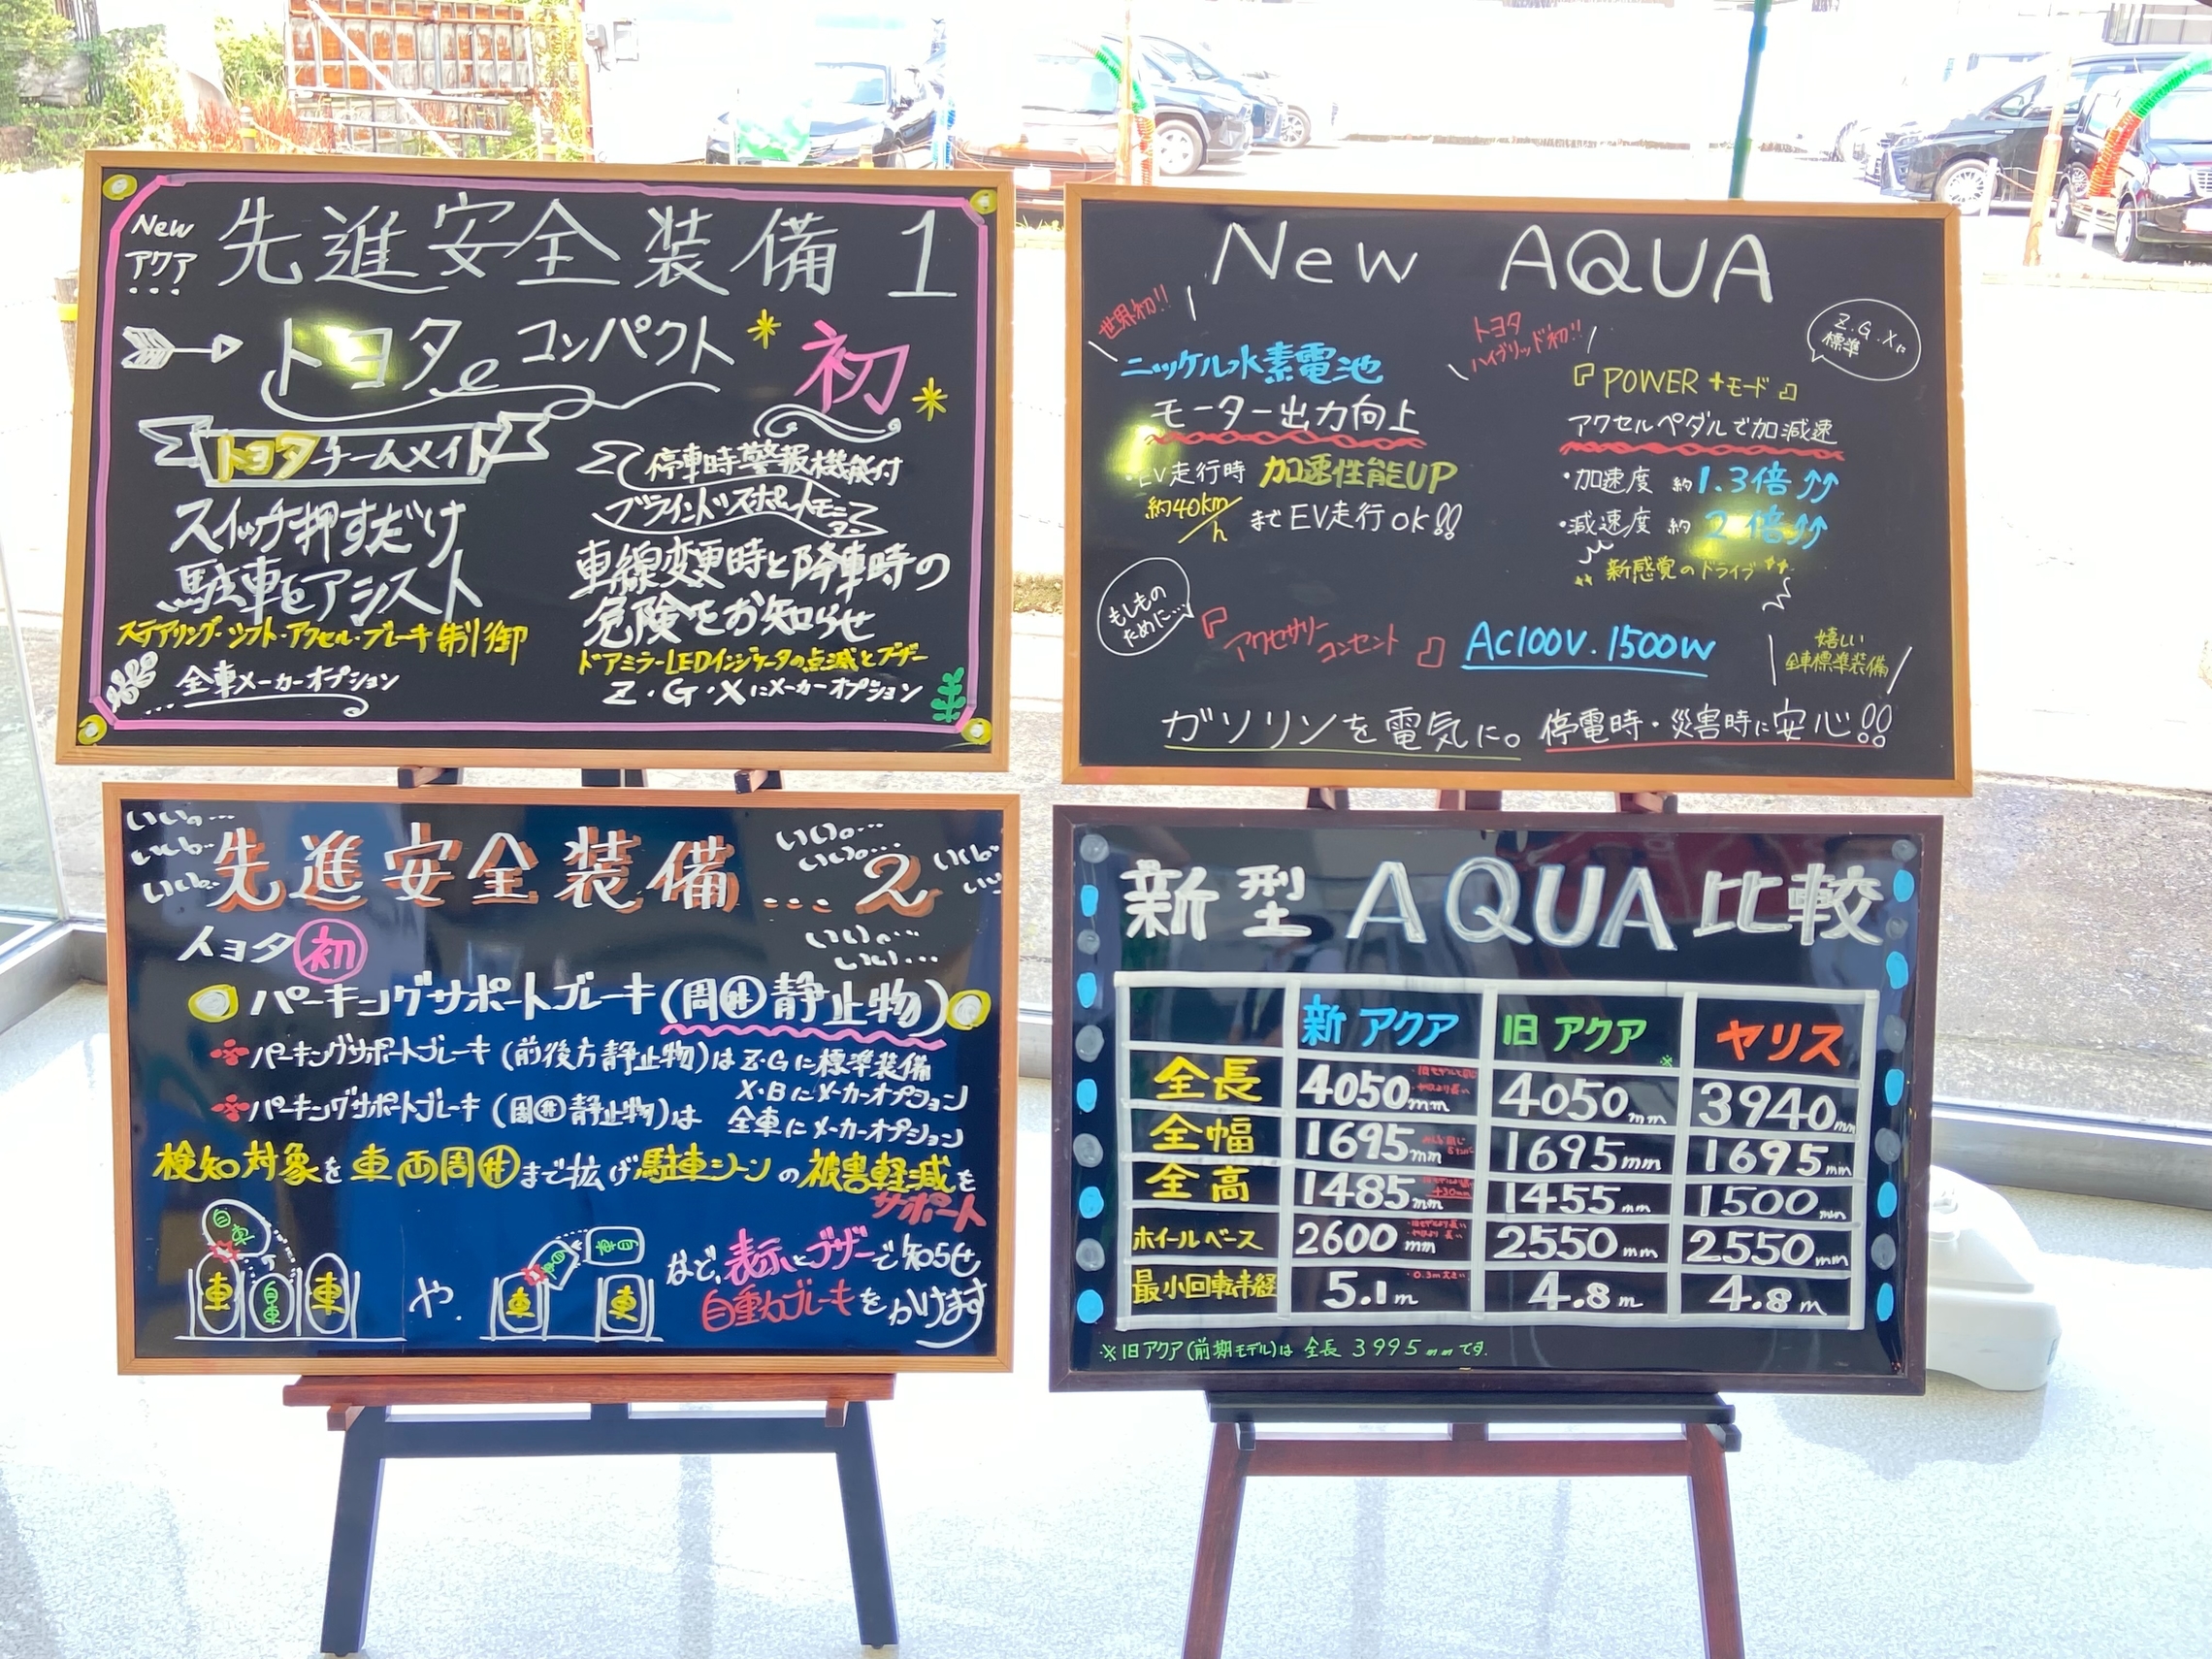 New
アクア
先進安全装備 1
トヨタ コンパクト 初
トヨタチームメイト
スイッチ押すだけ
駐車をアシスト
ステアリング・シフト・アクセル・ブレーキ制御
全車メーカーオプション
停車時警報機能付
ブラインドスポットモニター
車線変更時と降車時の
危険をお知らせ
ドアミラーLEDインジケータの点滅とブザー
Z・G・Xにメーカーオプション
New AQUA
世界初!!
ニッケル水素電池
モーター出力向上
・EV走行時 加速性能UP
約40km/h までEV走行OK!!
トヨタ
ハイブリッド初!!
Z.G.Xに
標準
『POWER+モード』
アクセルペダルで加減速
・加速度 約1.3倍↑↑
・減速度 約2倍↑↑
新感覚のドライブ
もしもの
ために…
『アクセサリーコンセント』 AC100V.1500W
嬉しい
全車標準装備
ガソリンを電気に。停電時・災害時に安心!!
いいの…
先進安全装備...2
トヨタ初
パーキングサポートブレーキ(周囲静止物)
パーキングサポートブレーキ(前後方静止物)はZ・Gに標準装備
X・Bにメーカーオプション
パーキングサポートブレーキ(周囲静止物)は 全車にメーカーオプション
検知対象を車両周囲まで拡げ駐車シーンの被害軽減を
サポート
自車
車 自車 車
や.
自車
自車
車 車
など、表示とブザーで知らせ
自動ブレーキをかけます
新型AQUA比較
新アクア 旧アクア※ ヤリス
全長 4050mm 4050mm 3940mm
全幅 1695mm 1695mm 1695mm
全高 1485mm +30mm 1455mm 1500mm
ホイールベース 2600mm 2550mm 2550mm
最小回転半経 5.1m 4.8m 4.8m
※旧アクア(前期モデル)は 全長 3995mmです.